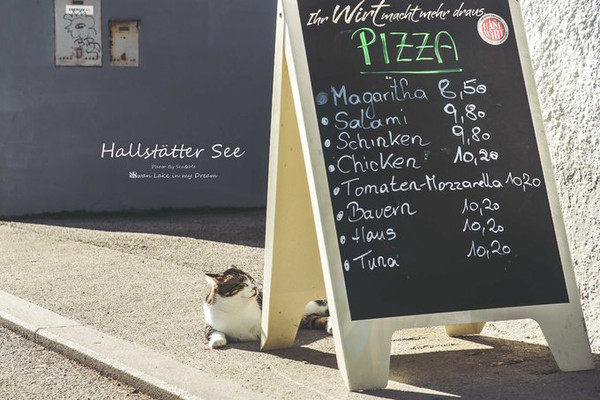 Ihr Wirt macht mehr draus
GAST WIRT
PIZZA
Magaritha 8,50
Salami 9,80
Schinken 9,80
Chicken 10,20
Tomaten-Mozzarella 10,20
Bauern 10,20
Haus 10,20
Tuna 10,20
Hallstätter See
Swan Lake in my Dream